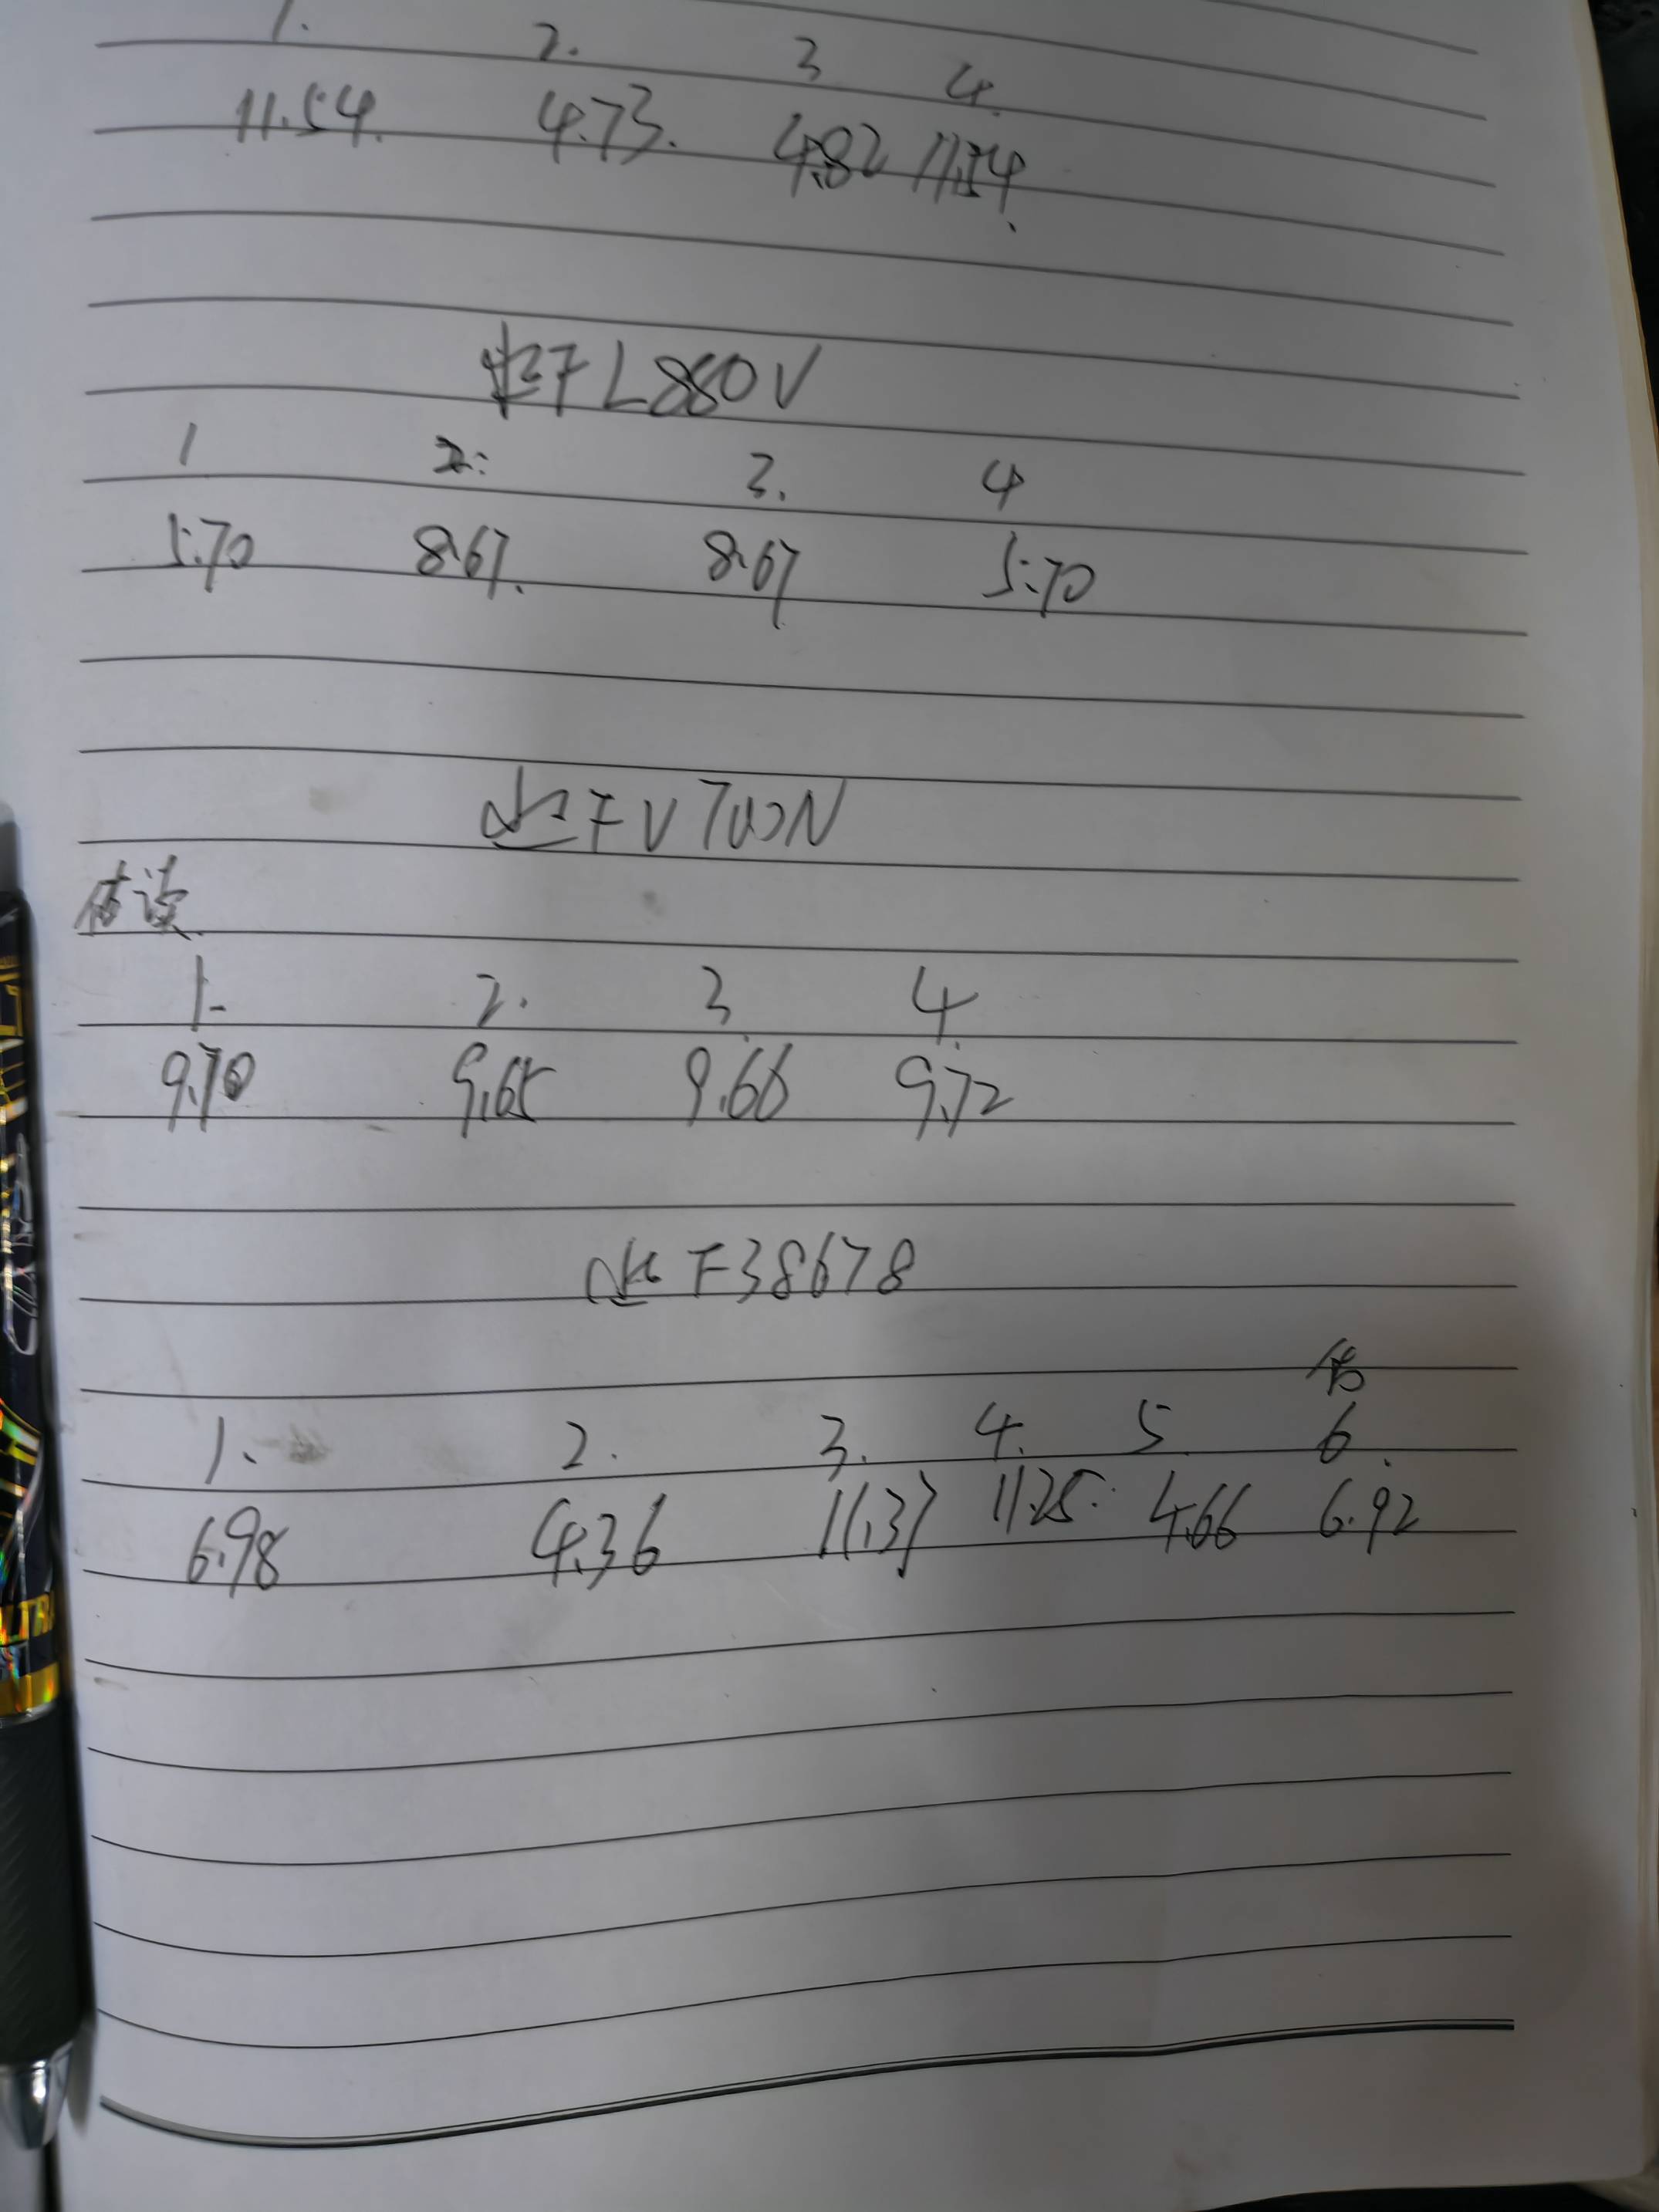 1. 2. 3 4.
11.54. 4.73. 4.82 11.54.
FL880V
1 2: 3. 4
5.70 8.67. 8.67 5.70
FV700N
1. 2. 3. 4.
9.70 9.65 9.66 9.72
F38678
1. 2. 3. 4. 5. 6.
6.98 4.36 11.37 11.25. 4.66 6.92